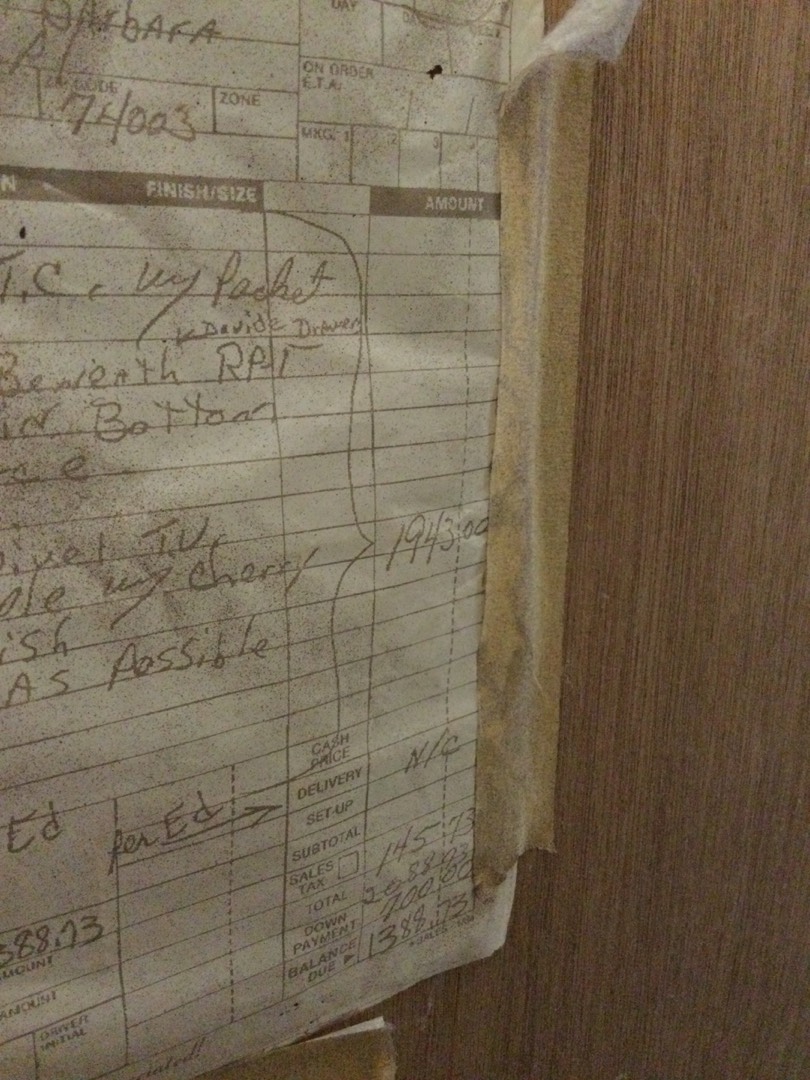 BARBARA
DAY
ON ORDER
E.T.A.
ZIP CODE
ZONE
74003
MKG. 1 2 3
N FINISH/SIZE AMOUNT
T.C. w/ Pocket
Davide Drawer
Beneath RPF
in Bottom
ce
ivel T.V.
ole w/ Cherry
ish
1943.00
AS Possible
CASH PRICE
DELIVERY N/C
SET-UP
Ed per Ed
SUBTOTAL
SALES TAX 145 73
TOTAL 2088.73
DOWN PAYMENT 700.00
BALANCE DUE 1388.73
388.73
AMOUNT
AMOUNT
DRIVER INITIAL
ciated!